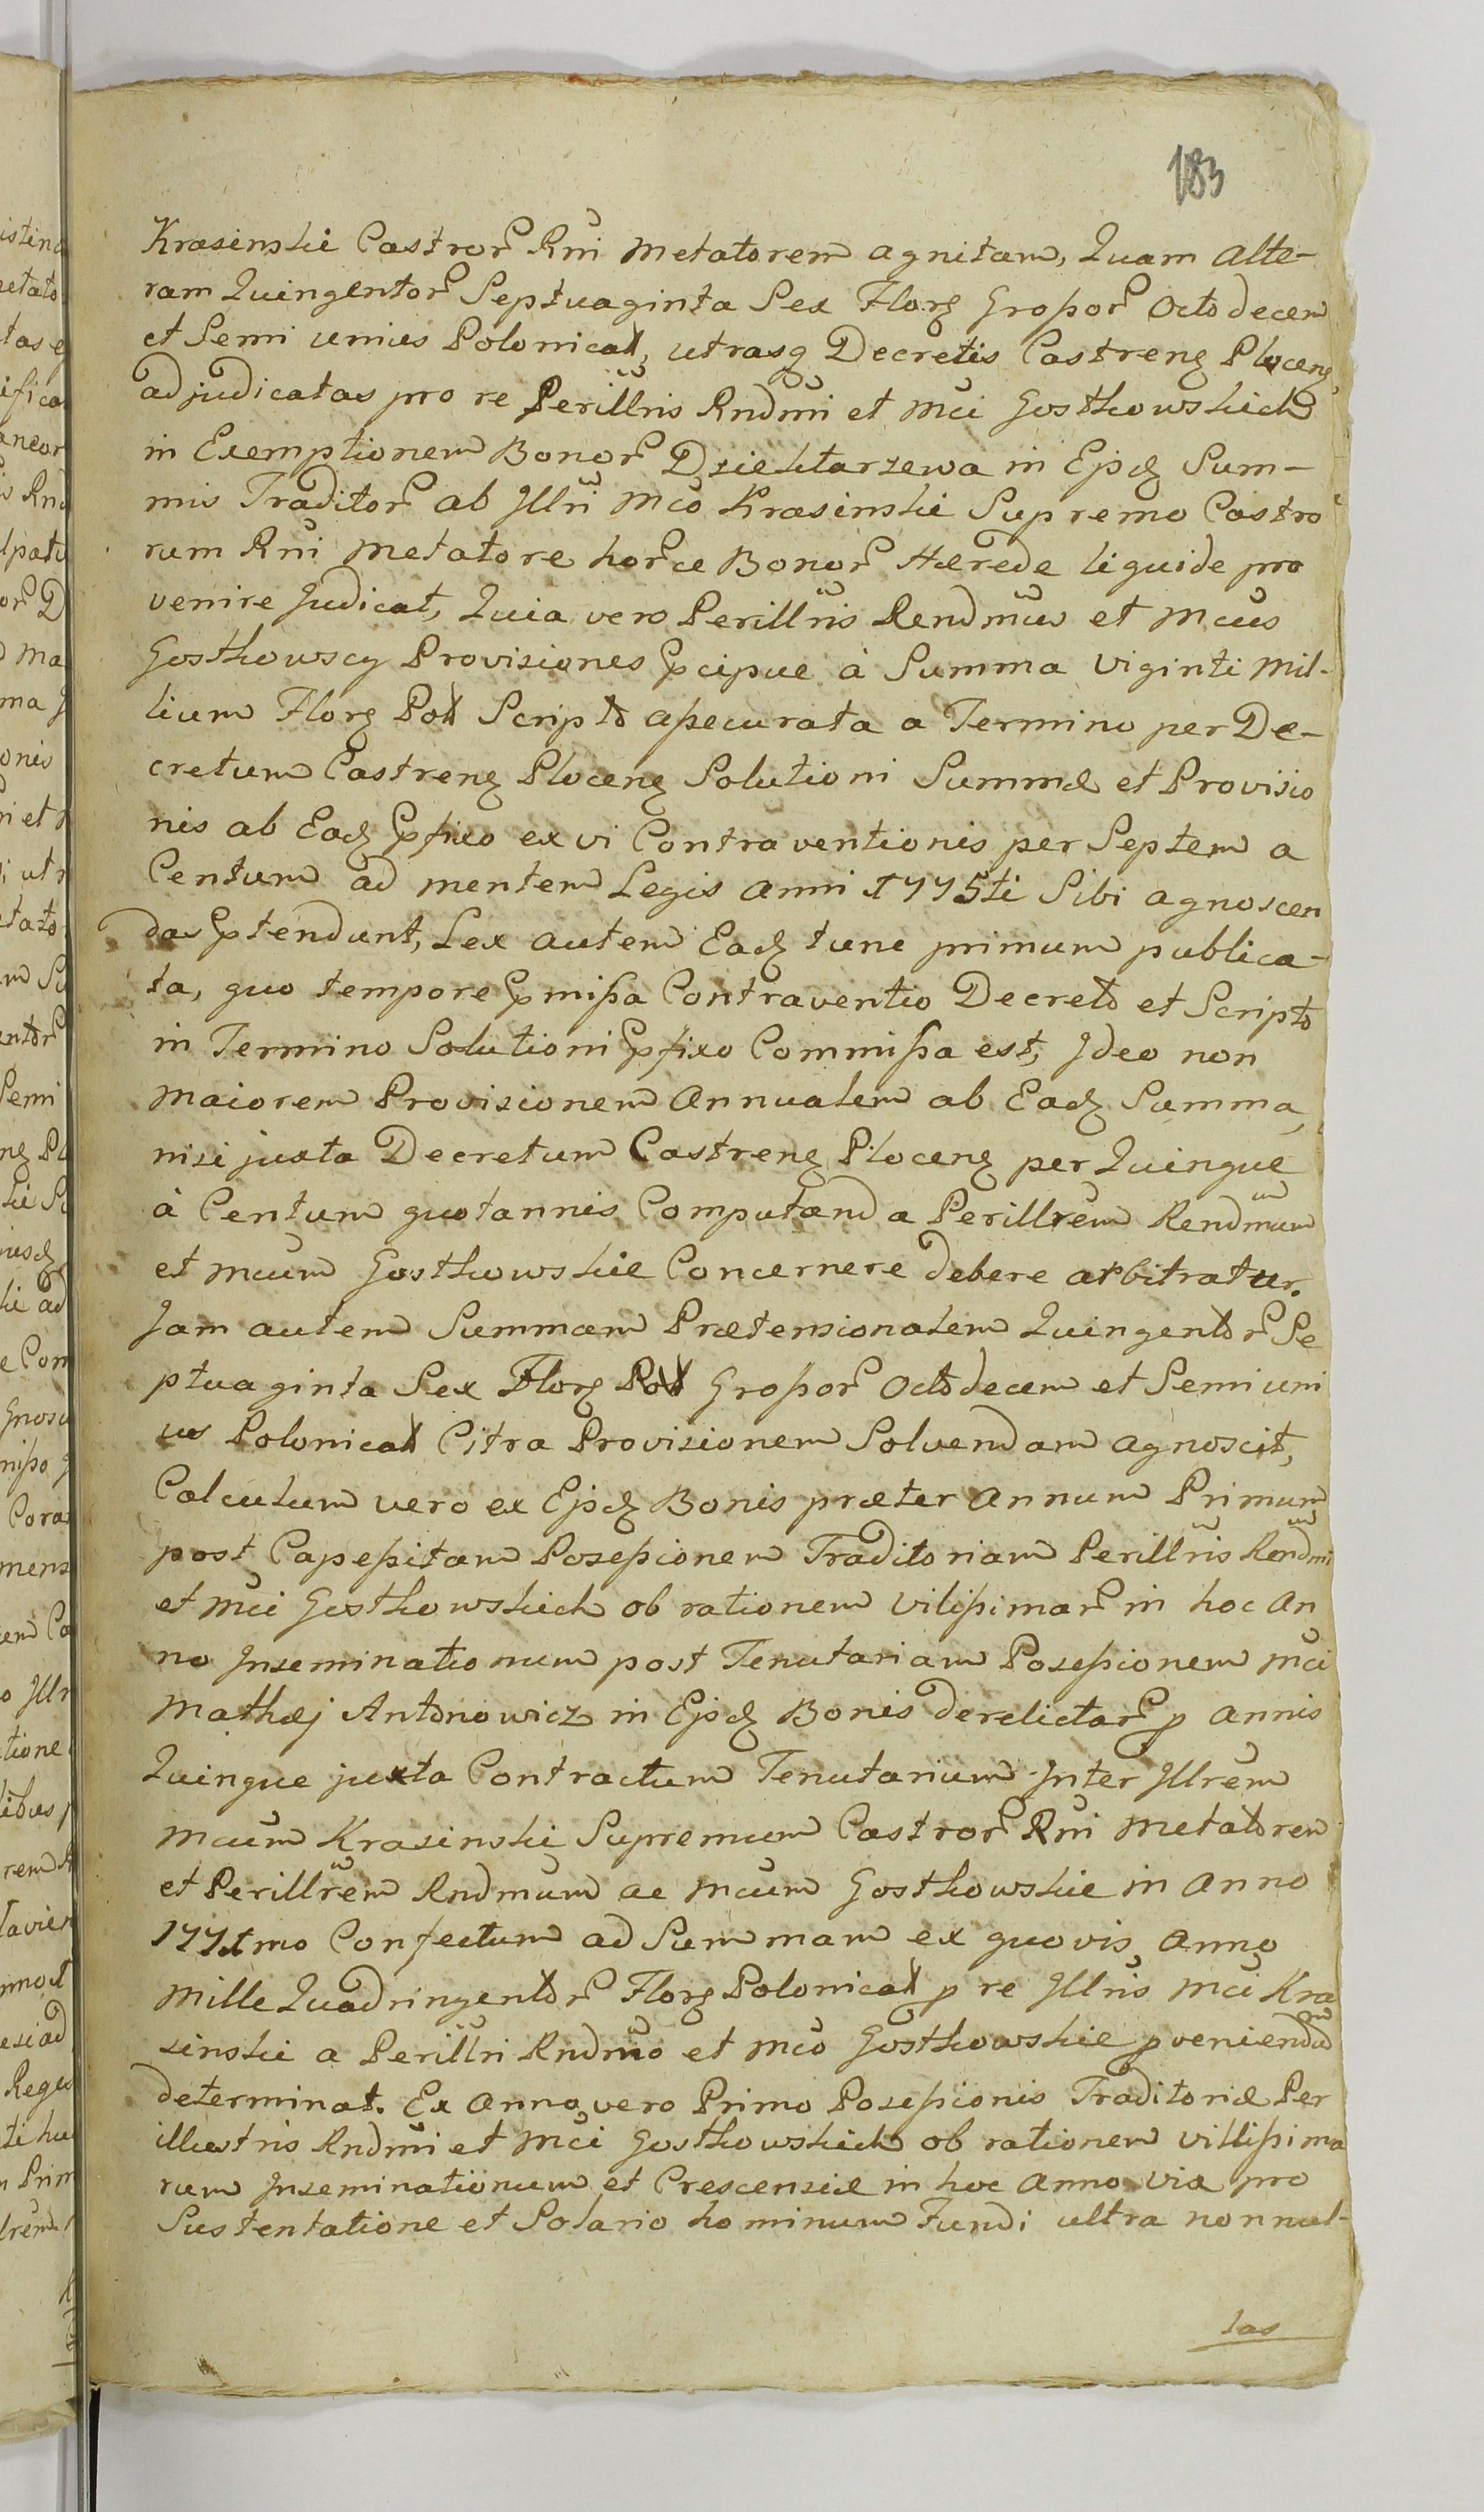 183
Krasinski Castror Rni Metatorem agnitam, Quam alte-
ram Quingentor Septuaginta Sex Florz Grossor Octodecem
et Semi unius Polonical, utrasq Decretis Castrenz Plocenz
adjudicatas pro re Perillris Rndmi et Mci Gostkowskich
in Exemptionem Bonor Dziektarzewa in Ejsdz Sum-
mis Traditor ab Illri Mco Krasinski Supremo Castro
rum Rni Metatore horce Bonor Hærede liquide pro
venire judicat, Quia vero Perillris Rendmus et Mcus
Gostkowscy Provisiones pcipue à Summa Viginti Mil-
lium Florz Pol Scripto assecurata a Termino per De-
cretum Castrenz Plocenz Solutioni Summæ et Provisio
nis ab Eadz pfixo ex vi Contraventionis per Septem a
Centum ad mentem Legis anni 1775ti Sibi agnoscen
das ptendunt, Lex autem Eadz tunc primum publica-
ta, quo tempore pmissa Contraventio Decreto et Scripto
in Termino Solutioni pfixo Commissa est, Ideo non
Maiorem Provisionem Annualem ab Eadz Summa,
nisi juxta Decretum Castrenz Plocenz per Quinque
à Centum quotannis Computand a Perillrem Rendmum
et Mcum Gostkowskie Concernere debere arbitratur.
Jam autem Summam Prætensionalem Quingentor Se
ptuaginta Sex Florz Pol Grossor Octodecem et Semi uni
us Polonical Citra Provisionem Solvendam agnoscit,
Calculum vero ex Ejsdz Bonis præter Annum Primum
post Capessitam Possessionem Traditoriam Perillris Rendmi
et Mci Gostkowskich ob rationem Vilissimar in hoc An
no Inseminationum post Tenutariam Possessionem Mci
Mathæj Antonowicz in Ejsdz Bonis derelictar p annis
Quinque juxta Contractum Tenutarium Inter Illrem
Mcum Krasinski Supremum Castror Rni Metatorem
et Perillrem Rndmum ac Mcum Gostkowskie in Anno
1771mo Confectum ad Summam ex quovis Anno
Mille Quadringentor Florz Polonical p re Illris Mci Kra
sinski a Perillri Rndmo et Mco Gostkowskie pveniendam
determinat. Ex Anno vero Primo Possessionis Traditoriæ Per
illustris Rndmi et Mci Gostkowskich ob rationem villissima
rum Inseminationum et Crescensiæ in hoc Anno via pro
Sustentatione et Solario hominum Fundi ultra nonnul-
las